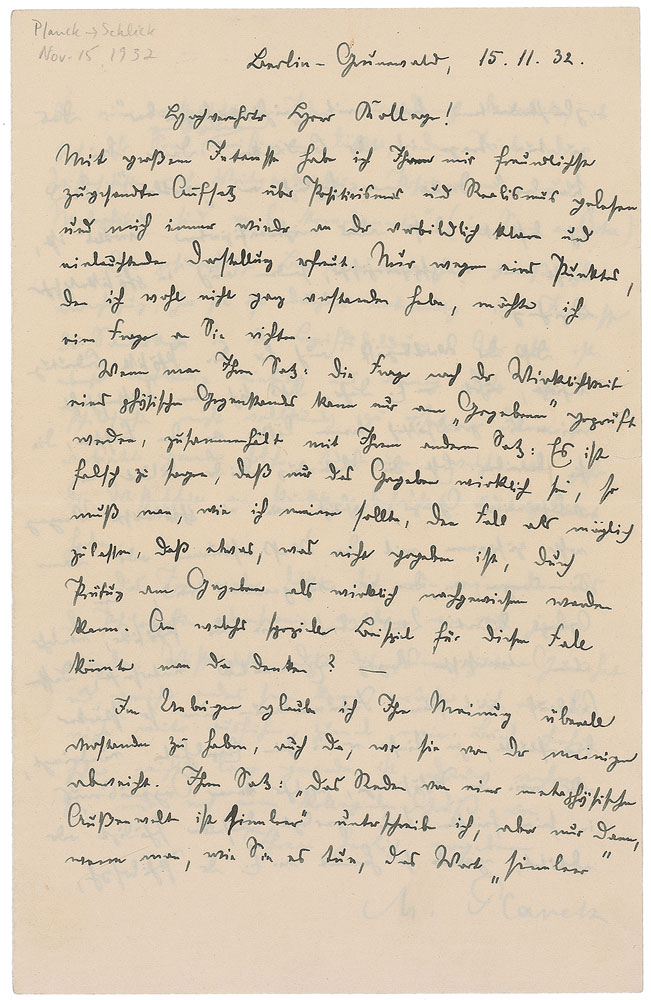 Planck → Schlick
Nov. 15, 1932
Berlin-Grunewald, 15. 11. 32.
Hochverehrter Herr Kollege!
Mit großem Interesse habe ich Ihren mir freundlichst
zugesandten Aufsatz über Positivismus und Realismus gelesen
und mich immer wieder an der vorbildlich klaren und
einleuchtenden Darstellung erfreut. Nur wegen eines Punktes,
den ich wohl nicht ganz verstanden habe, möchte ich
eine Frage an Sie richten.
Wenn man Ihren Satz: die Frage nach der Wirklichkeit
eines physischen Gegenstandes kann nur am „Gegebenen" geprüft
werden, zusammenhält mit Ihrem anderen Satz: Es ist
falsch zu sagen, daß nur das Gegebene wirklich sei, so
muß man, wie ich meinen sollte, den Fall als möglich
zulassen, daß etwas, was nicht gegeben ist, durch
Prüfung am Gegebenen als wirklich nachgewiesen werden
kann. An welches spezielle Beispiel für diesen Fall
könnte man da denken? —
Im Uebrigen glaube ich Ihre Meinung überall
verstanden zu haben, auch da, wo sie von der meinigen
abweicht. Ihren Satz: „Das Reden von einer metaphysischen
Außenwelt ist sinnleer" unterschreibe ich, aber nur dann,
wenn man, wie Sie es tun, das Wort „sinnleer"
M. Planck